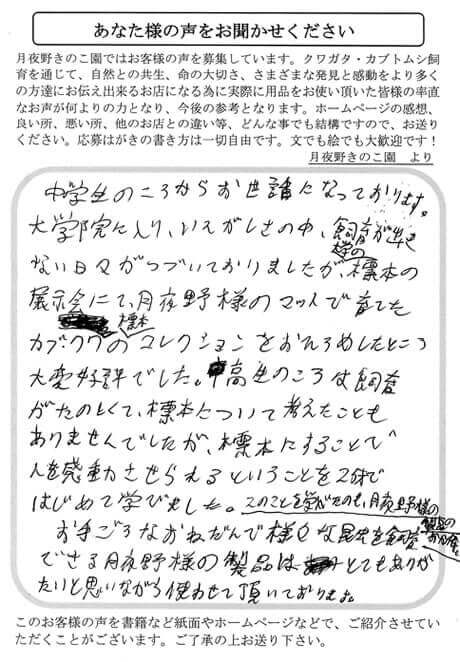 あなた様の声をお聞かせください
月夜野きのこ園ではお客様の声を募集しています。クワガタ・カブトムシ飼
育を通じて、自然との共生、命の大切さ、さまざまな発見と感動をより多く
の方達にお伝え出来るお店になる為に実際に用品をお使い頂いた皆様の率直
なお声が何よりの力となり、今後の参考となります。ホームページの感想、
良い所、悪い所、他のお店との違い等、どんな事でも結構ですので、お送り
ください。応募はがきの書き方は一切自由です。文でも絵でも大歓迎です！
月夜野きのこ園　より
中学生のころからお世話になっております。
大学院に入り、いそがしさの中、飼育が出来
ない日々がつづいておりましたが、標本の
展示会にて、月夜野様のマットで育てた
標本
カブクワのコレクションをおひろめしたところ
大変好評でした。中高生のころは飼育
がたのしくて、標本について考えたことも
ありませんでしたが、標本にすることで
人を感動させられるということを26才で
はじめて学びました。このことを学べたのも、月夜野様の
製品のおかげ
お手ごろなおねだんで様々な昆虫を飼育
できる月夜野様の製品はとてもありが
たいと思いながら使わせて頂いております。
このお客様の声を書籍など紙面やホームページなどで、ご紹介させてい
ただくことがございます。ご了承の上お送り下さい。